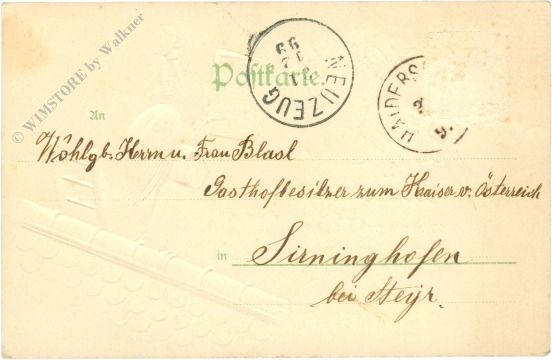 © WIMSTORE by Walkner
Postkarte.
NEUZEUG
99
HAIDERS
An
Wohlgb. Herrn u. Frau Blasl
Gasthofbesitzer zum Kaiser v. Österreich
in Sirninghofen
bei Steyr.